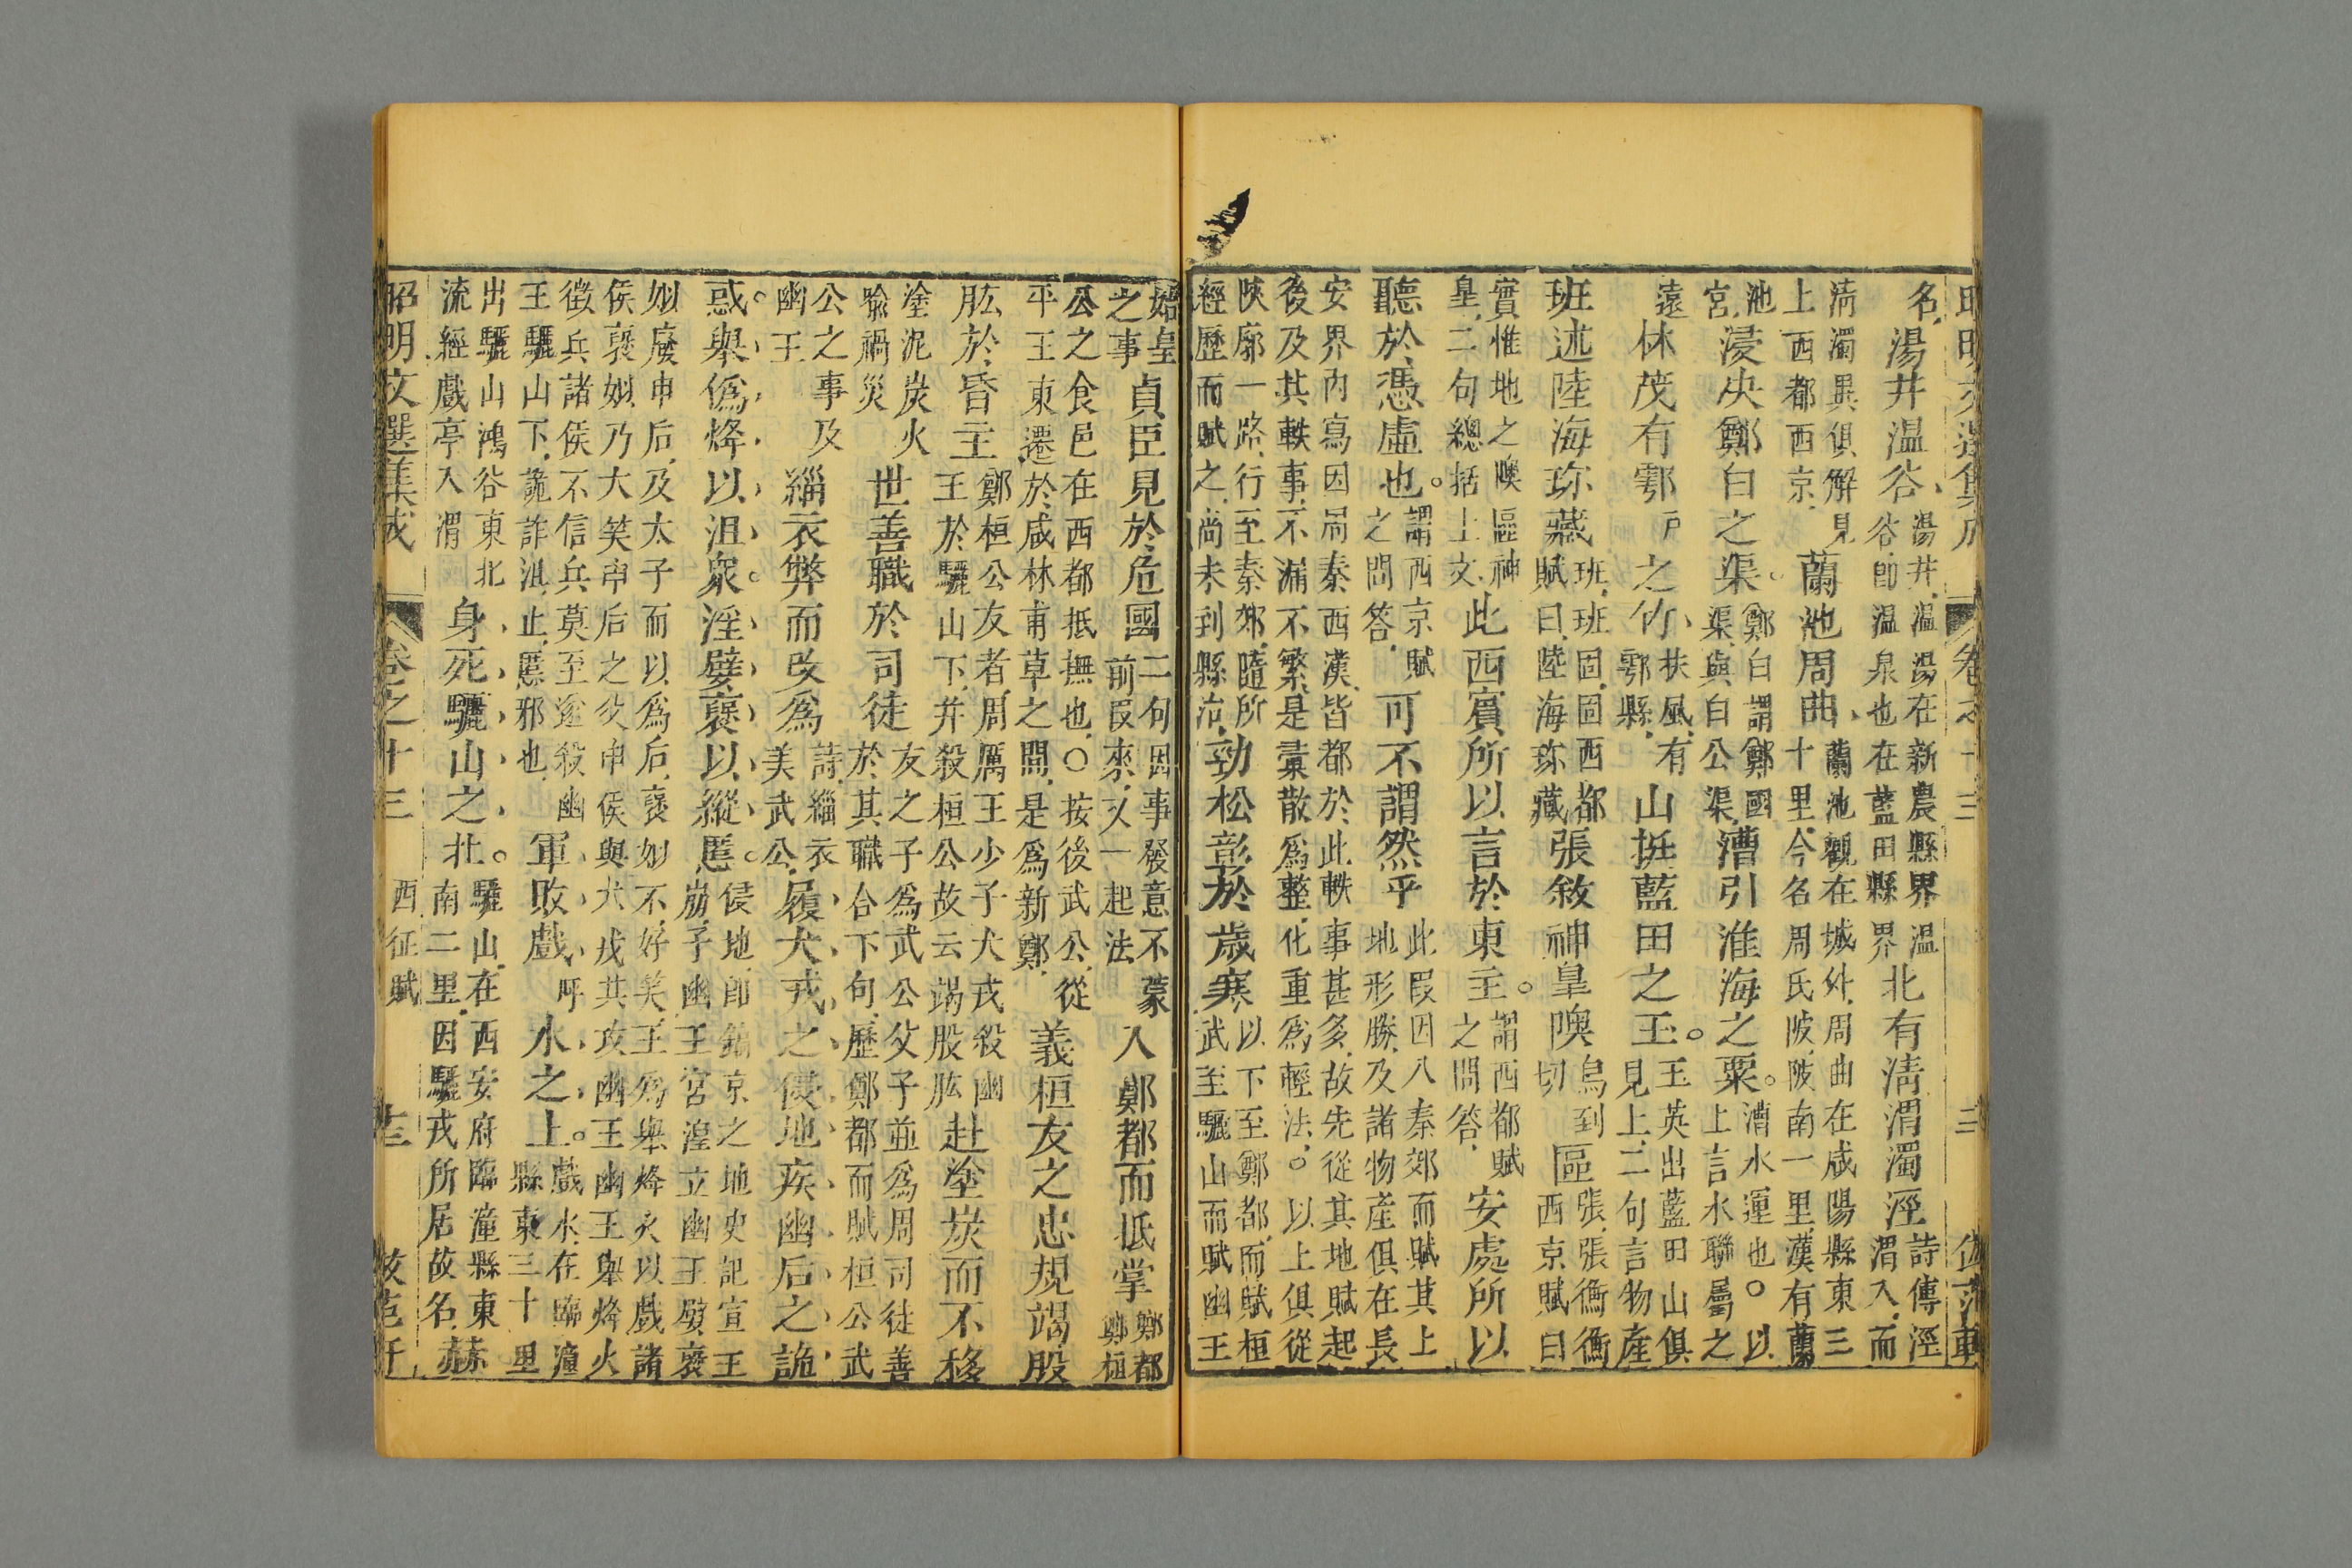 名湯井温谷湯井温湯在新農縣界温谷即温泉也在藍田縣界北有清渭濁涇詩傳涇渭入而
清濁異俱解見上西都西京蘭池周曲蘭池觀在城外周曲在咸陽縣東三十里今名周氏陂陂南一里漢有蘭
池宮浸決鄭白之渠鄭白謂鄭國渠與白公渠漕引淮海之粟漕水運也○以上言水聯屬之
遠林茂有鄠戸之竹扶風有鄠縣山挺藍田之玉玉英出藍田山俱見上二句言物產
班述陸海珎藏班班固固西都賦曰陸海珎藏張敘神皐隩烏到切區張張衡衡西京賦曰
實惟地之隩區神皐二句總括上文此西賓所以言於東主謂西都賦之問答安處所以
聽於憑虛也謂西京賦之問答可不謂然乎此叚因入秦郊而賦其上地形勝及諸物產俱在長
安界內寫因局秦西漢皆都於此軼事甚多故先從其地賦起後及其軼事不漏不繁是彚散為整化重為輕法○以上俱從
陝廓一路行至秦郊隨所經歷而賦之尚未到縣治勁松彰於歲寒以下至鄭都而賦桓武至驪山而賦幽王
始皇之事貞臣見於危國二句因事發意不蒙前叚來又一起法入鄭都而抵掌鄭都鄭桓
公之食邑在西都抵撫也○按後武公從平王東遷於咸林甫草之間是為新鄭義桓友之忠規竭股
肱於昏主鄭桓公友者周厲王少子犬戎殺幽王於驪山下并殺桓公故云竭股肱赴塗炭而不移
塗泥炭火喩禍災世善職於司徒友之子為武公父子並為周司徒善於其職合下句歷鄭都而賦桓公武
公之事及幽王緇衣弊而改為詩緇衣美武公履犬戎之侵地疾幽后之詭
惑舉偽烽以沮衆淫嬖褒以縱慝侵地即鎬京之地史記宣王崩子幽王宮湼立幽王嬖褒
姒廢申后及太子而以為后褒姒不好笑王為舉烽火以戲諸侯褒姒乃大笑申后之父申侯與犬戎共攻幽王幽王舉烽火
徵兵諸侯不信兵莫至遂殺幽王驪山下詭詐沮止慝邪也軍敗戲呼水之上戲水在臨潼縣東三十里
出驪山鴻谷東北流經戲亭入渭身死驪山之北驪山在西安府臨潼縣東南二里因驪戎所居故名赫
昭明文選集成 卷之十三 西征賦